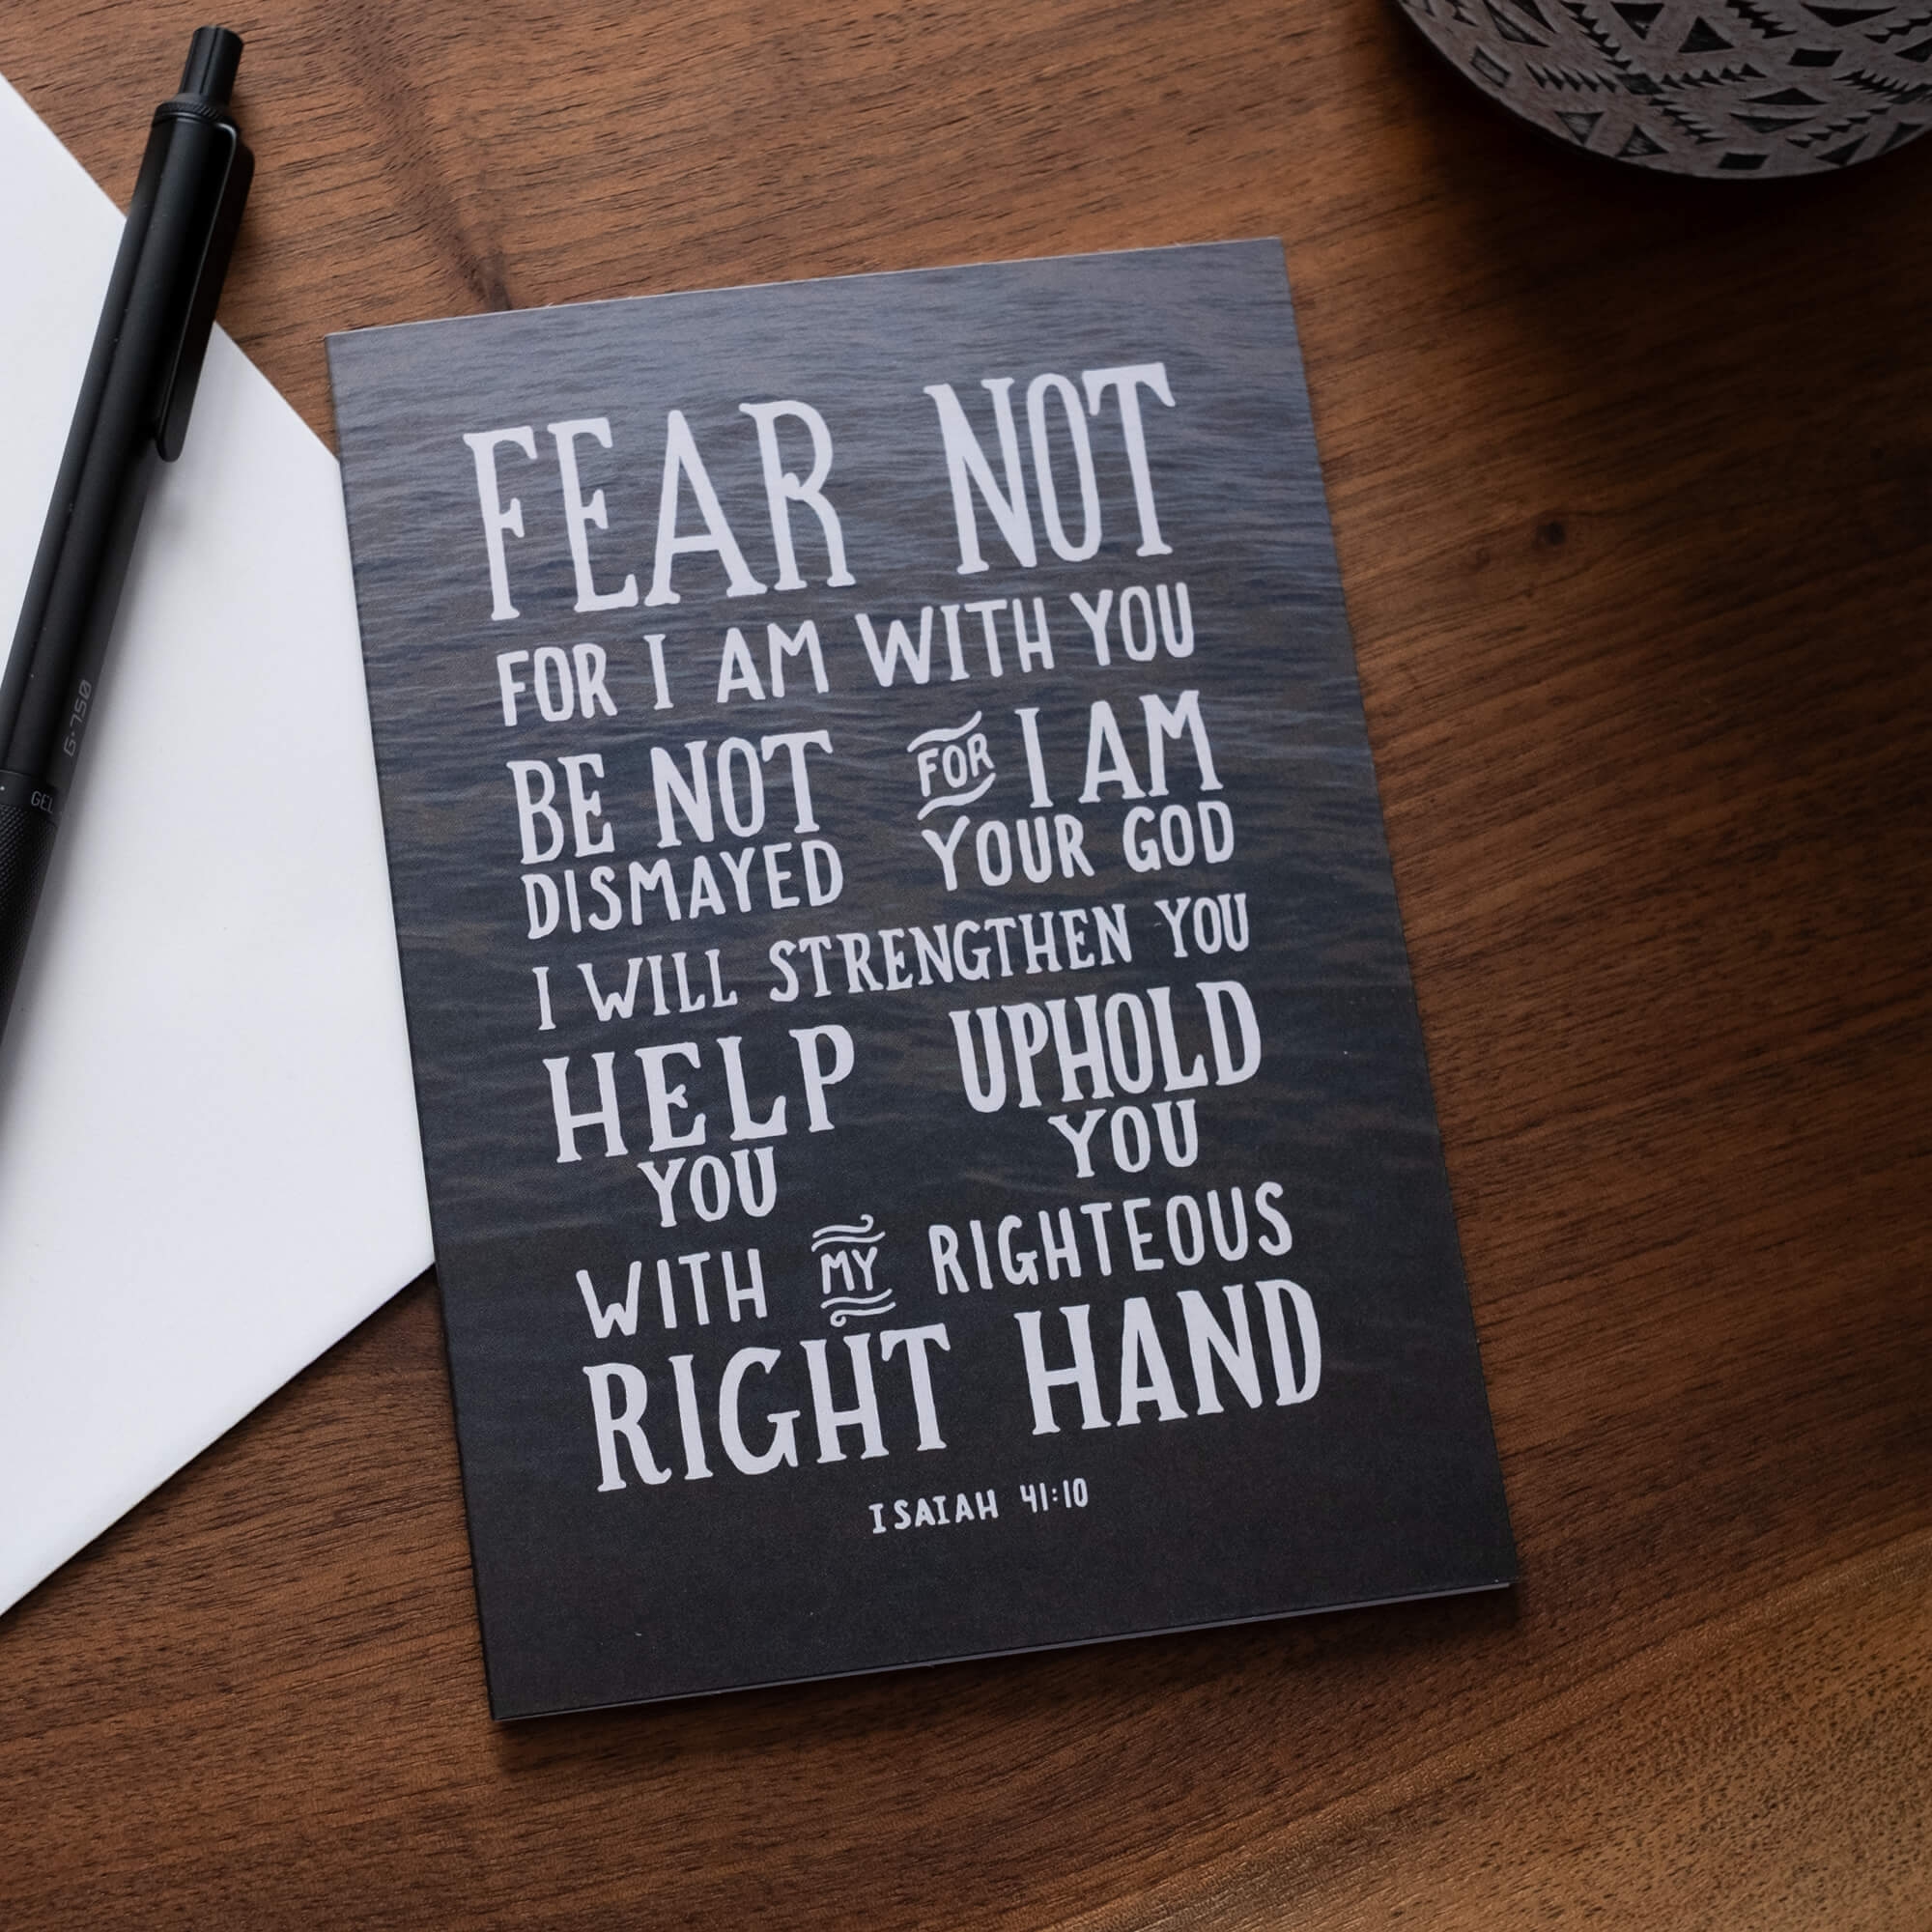 FEAR NOT
FOR I AM WITH YOU
BE NOT DISMAYED
FOR I AM YOUR GOD
I WILL STRENGTHEN YOU
HELP YOU
UPHOLD YOU
WITH MY RIGHTEOUS
RIGHT HAND
ISAIAH 41:10
G-750
GEL